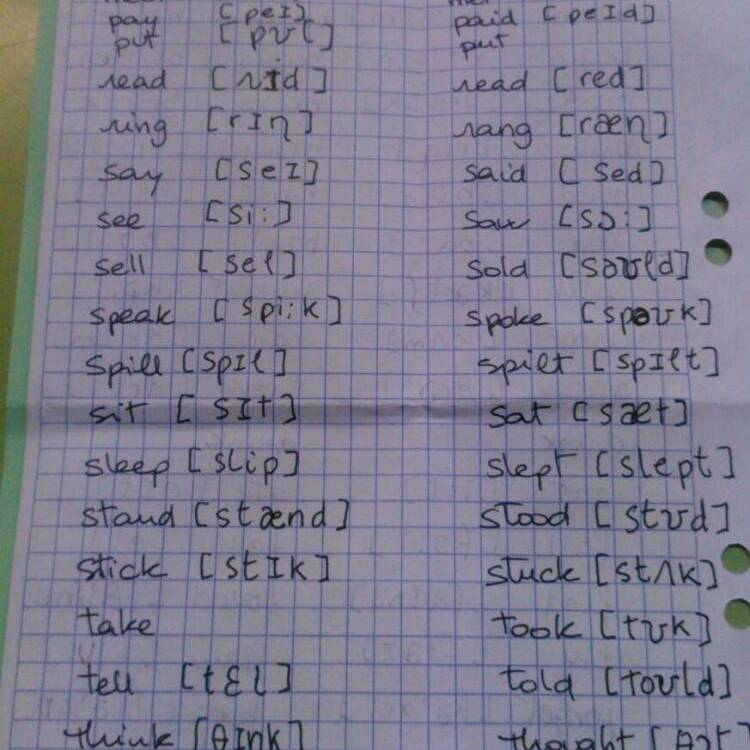 pay [peI] paid [peId]
put [pʊt] put
read [rɪd] read [red]
ring [rIŋ] rang [ræŋ]
say [seI] said [sed]
see [si:] saw [sɔ:]
sell [sel] sold [səʊld]
speak [spi:k] spoke [spəʊk]
spill [spIl] spilt [spIlt]
sit [sIt] sat [sæt]
sleep [slip] slept [slept]
stand [stænd] stood [stʊd]
stick [stIk] stuck [stʌk]
take took [tʊk]
tell [tɛl] told [toʊld]
think [θInk] thought [θɔt